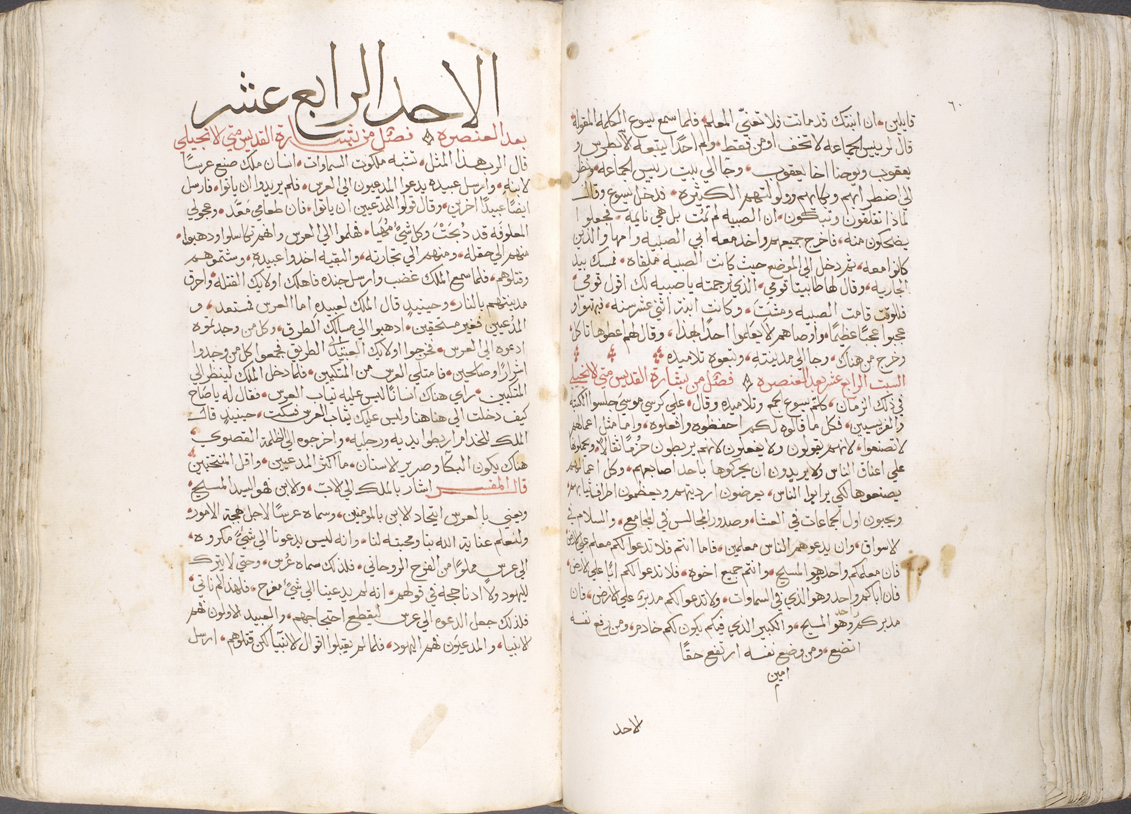 قايلين • ان ابنتك قد ماتت فلا تعنّي المعلم • فلما سمع يسوع الكلمه المقوله
قال لرييس الجماعه لا تخف اومن فقط • ولم احدًا يتبعه الا بطرس و
يعقوب ويوحنا اخا يعقوب • وجا الي بيت رييس الجماعه • ونظر
الي اضطرابهم وبكايهم وولولتهم الكثيره • فدخل يسوع وقال
لماذا تقلقون وتبكون • ان الصبيه لم تمت بل هي نايمه • فجعلوا
يضحكون منه • فاخرج جميعهم واخذ معه ابي الصبيه وامها والذين
كانوا معه • ثم دخل الي الموضع حيث كانت الصبيه ملقاه • فمسك بيد
الجاريه • وقال لها طابيثا قومي • الذي ترجمته يا صبيه لك اقول قومي
فللوقت قامت الصبيه ومشت • وكانت ابنة اثني عشر سنه • فبهتوا و
عجبوا عجبًا عظيمًا • واوصاهم لا يعلموا احدًا بهذا • وقال لهم اعطوها تاكل
وخرج من هناك • وجا الي مدينته • وتبعوه تلاميذه
السبت الرابع عشر بعد العنصره فصل من بشارة القديس متي الانجيلي
في ذلك الزمان • كلم يسوع الجمع وتلاميذه وقال • علي كرسي موسي جلسوا الكتبه
والفريسيين • فكل ما قالوه لكم احفظوه وافعلوه • واما مثل اعمالهم
لا تصنعوا • لانهم يقولون ولا يفعلون لانهم يربطون حزمًا ثقالًا • ويحملوها
علي اعناق الناس ولا يريدون ان يحركوها باحد اصابعهم • وكل اعمالهم
يصنعوها لكي يرايوا الناس • يعرضون ارديتهم ويعظمون اطراف ثيابهم
ويحبون اول الجماعات في العشا • وصدور المجالس في المجامع • والسلام في
الاسواق • وان يدعوهم الناس معلمين • فاما انتم فلا تدعوا لكم معلم علي الارض
فان معلمكم واحد وهو المسيح • وانتم جميع اخوه • فلا تدعوا لكم ابًا علي الارض
فان اباكم واحد وهو الذي في السماوات • ولا تدعوا لكم مدبر علي الارض • فان
مدبركم واحد وهو المسيح • والكبير الذي فيكم يكون لكم خادم • ومن رفع نفسه
اتضع • ومن وضع نفسه ارتفع حقًا
امين
الاحد
الاحد الرابع عشر
بعد العنصره فصل من بشارة القديس متي الانجيلي
قال الرب هذا المثل • تشبه ملكوت السماوات • انسان ملك صنع عرسًا
لابنه • وارسل عبيده يدعوا المدعوين الي العرس • فلم يريدوا ان ياتوا • فارسل
ايضًا عبيدًا اخرين • وقال قولوا للمدعيين ان ياتوا • فان طعامي معد • وعجولي
المعلوفه قد ذبحت وكل شي مهيا • فهلموا الي العرس • وانهم تكاسلوا ودهبوا
منهم الي حقله • ومنهم الي تجارته • والبقيه اخدوا عبيده • وشتموهم
وقتلوهم • فلما سمع الملك غضب وارسل جنده فاهلك اولايك القتله • واحرق
مدينتهم بالنار • وحينيد قال الملك لعبيده اما العرس فمستعد • و
المدعيين فغير مستحقين • ادهبوا الي مسالك الطرق • وكل من وجدتموه
ادعوه الي العرس • فخرجوا اولايك العبيد الي الطريق فجمعوا كل من وجدوا
اشرارًا وصالحين • فامتلي العرس من المتكيين • فلما دخل الملك لينظر الي
المتكيين • راي هناك انسانًا ليس عليه ثياب العرس • فقال له يا صاح
كيف دخلت الي هاهنا وليس عليك ثياب العرس فسكت • حينيد قال
الملك للخدام اربطوا يديه ورجليه • واخرجوه الي الظلمه القصوي
هناك يكون البكا وصرير الاسنان • ما اكثر المدعيين • واقل المنتخبين
قال المفسر اشار بالملك الي الاب • والابن هو السيد المسيح
ويعني بالعرس اتحاد الابن بالمومنين • وسماه عرسًا لاجل بهجة الامور
ولنعلم عناية الله بنا ومحبته لنا • وانه ليس يدعونا الي شي مكروه
الي عرس مملوًا من الفرح الروحاني • فلذلك سماه عرس • وحتي لا يترك
لليهود ولا ادنا حجه في قولهم • انه لم يدعينا الي شي مفرح • فلهذا لم ناتي
فلذلك جعل الدعوه الي عرس ليقطع احتجاجهم • والعبيد الاولون فهم
الانبيا • والمدعيون هم اليهود • فلما لم يقبلوا اقوال الانبيا لكن قتلوهم • ارسل